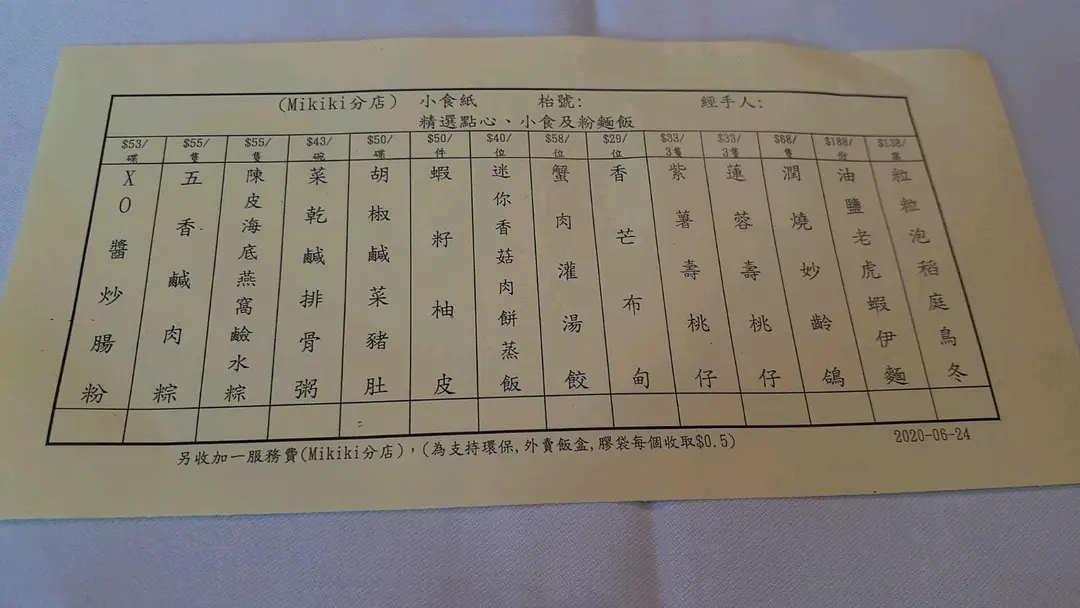 (Mikiki分店) 小食紙 枱號: 經手人:
精選點心、小食及粉麵飯
$53/碟
XO醬炒腸粉
$55/隻
五香鹹肉粽
$55/隻
陳皮海底燕窩鹼水粽
$43/碗
菜乾鹹排骨粥
$50/碟
胡椒鹹菜豬肚
$50/件
蝦籽柚皮
$40/位
迷你香菇肉餅蒸飯
$58/位
蟹肉灌湯餃
$29/位
香芒布甸
$33/3隻
紫薯壽桃仔
$33/3隻
蓮蓉壽桃仔
$68/隻
潤燒妙齡鴿
$188/
油鹽老虎蝦伊麵
$138/
粒粒泡稻庭烏冬
另收加一服務費(Mikiki分店),(為支持環保,外賣飯盒,膠袋每個收取$0.5)
2020-06-24